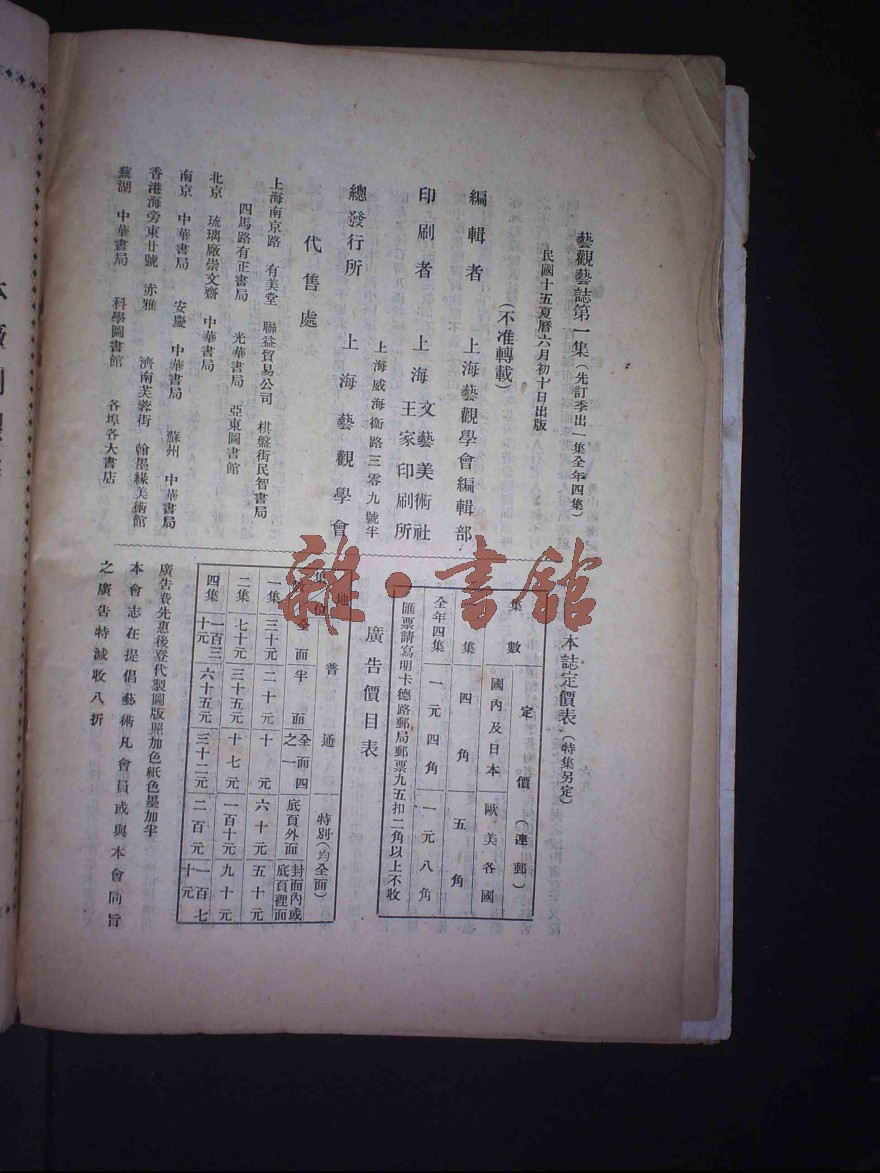 藝觀藝誌第一集(先訂季出一集全年四集)
民國十五夏曆六月初十日出版
(不准轉載)
編輯者 上海藝觀學會編輯部
印刷者 上海文藝美術社
王家印刷所
上海威海衛路三零九號半
總發行所 上海藝觀學會
代售處
上海南京路 有美堂 聯益貿易公司 棋盤街民智書局
四馬路有正書局 光華書局 亞東圖書館
北京 琉璃廠崇文齋 中華書局
南京 中華書局 安慶 中華書局 蘇州 中華書局
香港海旁東廿號 赤雅 濟南芙蓉街 翰墨緣美術館
蕪湖 中華書局 科學圖書館 各埠各大書店
本誌定價表(特集另定)
集數 定價(連郵)
國內及日本 歐美各國
一集 四角 五角
全年四集 一元四角 一元八角
匯票請寫明卡德路郵局郵票九五扣二角以上不收
廣告價目表
地位 普通 特別(均全面)
集數 全面 半面 全面四之一 底頁外面 封面內或底頁裡面
一集 三十元 二十元 十元 六十元 五十元
二集 七十元 三十五元 十七元 一百十元 九十元
四集 一百三十元 六十五元 三十二元 二百元 一百七十元
廣告費先惠後登代製圖版照加色紙色墨加半
本會志在提倡藝術凡會員或與本會同旨
之廣告特減收八折
雜·書館